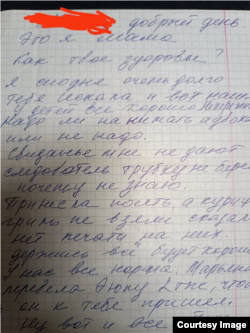 добрый день
Это я мама
Как твое здоровье?
Я сегодня очень долго
тебя искала и вот нашла
У детей все хорошо
Надо ли нанимать адвока
или не надо.
Свиданье мне не дают
следователь трубку не бере
почему не знаю.
Принесла поесть, а курицу
гриль не взяли сказали
нет печати на них.
держись все будет хорошо
У нас все норма.
перевела 2 тыс, что
он к тебе пришел.
Ну вот и все
Courtesy Image